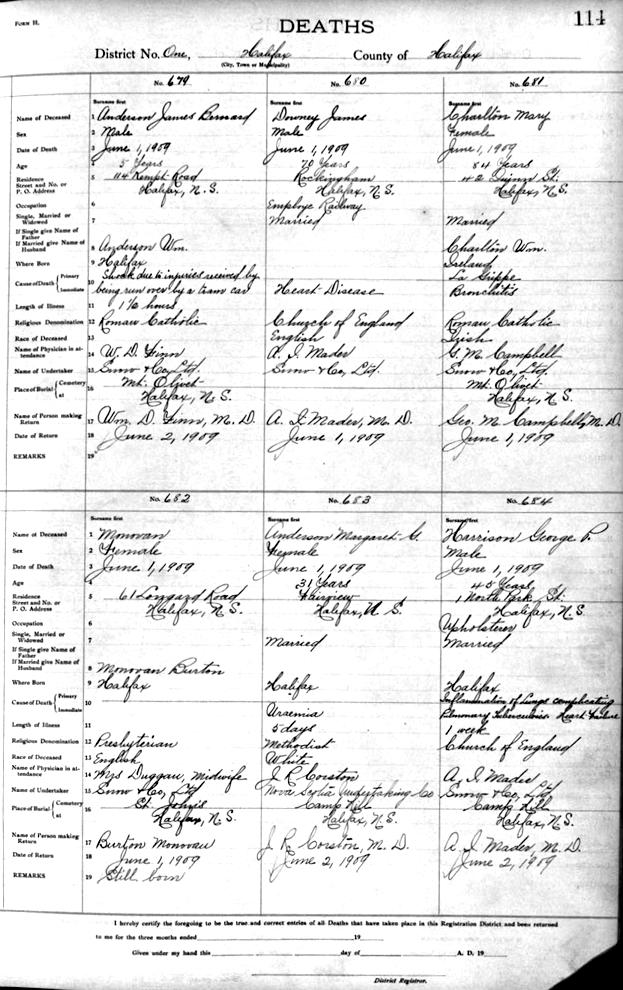 FORM H.
114
DEATHS
District No. One, Halifax County of Halifax
(City, Town or Municipality)
No. 679 No. 680 No. 681
Surname first Surname first Surname first
Name of Deceased 1 Anderson James Bernard Downey James Charlton Mary
Sex 2 Male Male Female
Date of Death 3 June 1, 1909 June 1, 1909 June 1, 1909
Age 4 5 Years 70 Years 84 Years
Residence 5 114 Kempt Road Rockingham 42 Quinn St.
Street and No. or
P. O. Address Halifax, N. S. Halifax, N. S. Halifax, N. S.
Occupation 6 Employe Railway
Single, Married or 7 Married Married
Widowed
If Single give Name of
Father
If Married give Name of 8 Anderson Wm. Charlton Wm.
Husband
Where Born 9 Halifax Ireland
Cause of Death Primary 10 Shock due to injuries received by La Grippe
Immediate being run over by a tram car Heart Disease Bronchitis
Length of Illness 11 1½ hours
Religious Denomination 12 Roman Catholic Church of England Roman Catholic
Race of Deceased 13 English Irish
Name of Physician in at- 14 W. D. Finn A. I. Mader G. M. Campbell
tendance
Name of Undertaker 15 Snow & Co, Ltd. Snow & Co, Ltd. Snow & Co, Ltd.
Place of Burial Cemetery 16 Mt. Olivet Mt. Olivet
at Halifax, N. S. Halifax, N. S.
Name of Person making 17 Wm. D. Finn, M. D. A. I. Mader, M. D. Geo. M. Campbell, M. D.
Return
Date of Return 18 June 2, 1909 June 1, 1909 June 1, 1909
REMARKS 19
No. 682 No. 683 No. 684
Surname first Surname first Surname first
Name of Deceased 1 Monovan Anderson Margaret G. Harrison George P.
Sex 2 Female Female Male
Date of Death 3 June 1, 1909 June 1, 1909 June 1, 1909
Age 4 31 Years 45 Years
Residence 5 61 Longard Road Fairview 1 North Park St.
Street and No. or
P. O. Address Halifax, N. S. Halifax, N. S. Halifax, N. S.
Occupation 6 Upholsterer
Single, Married or 7 Married Married
Widowed
If Single give Name of
Father
If Married give Name of 8 Monovan Burton
Husband
Where Born 9 Halifax Halifax Halifax
Cause of Death Primary 10 Inflammation of Lungs complicating
Immediate Uraemia Pulmonary Tuberculosis Heart Failure
Length of Illness 11 5 days 1 week
Religious Denomination 12 Presbyterian Methodist Church of England
Race of Deceased 13 English White
Name of Physician in at- 14 Mrs Duggan, Midwife J. R. Corston A. I. Mader
tendance
Name of Undertaker 15 Snow & Co, Ltd Nova Scotia Undertaking Co Snow & Co, Ltd
Place of Burial Cemetery 16 St. John's Camp Hill Camp Hill
at Halifax, N. S. Halifax, N. S. Halifax, N. S.
Name of Person making 17 Burton Monovan J. R. Corston, M. D. A. I. Mader, M. D.
Return
Date of Return 18 June 1, 1909 June 2, 1909 June 2, 1909
REMARKS 19 Still born
I hereby certify the foregoing to be the true and correct entries of all Deaths that have taken place in this Registration District and been returned
to me for the three months ended 19
Given under my hand this day of A. D. 19
District Registrar.